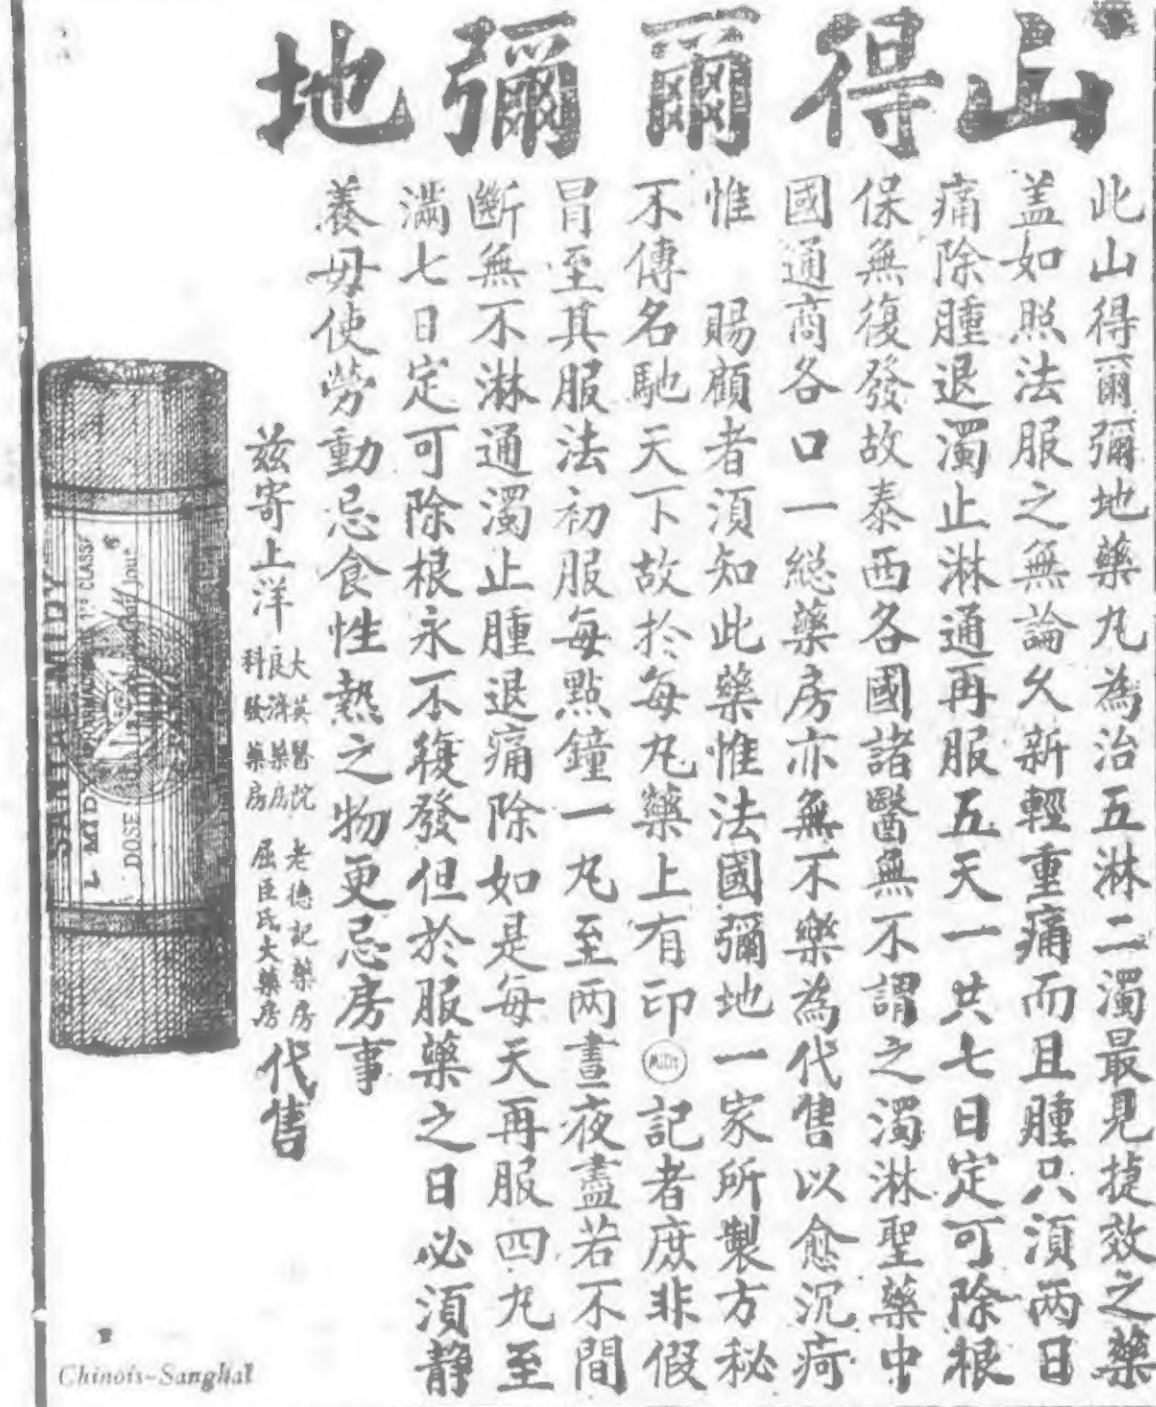 山得爾彌地
此山得爾彌地藥丸為治五淋二濁最見捷效之藥
盖如照法服之無論久新輕重痛而且腫只須兩日
痛除腫退濁止淋通再服五天一共七日定可除根
保無復發故泰西各國諸醫無不謂之濁淋聖藥中
國通商各口一總藥房亦無不樂為代售以愈沉疴
惟 賜顧者須知此藥惟法國彌地一家所製方秘
不傳名馳天下故於每丸藥上有印 MIDY 記者庶非假
冒至其服法初服每點鐘一丸至兩晝夜盡若不間
斷無不淋通濁止腫退痛除如是每天再服四丸至
滿七日定可除根永不復發但於服藥之日必須靜
養毋使勞動忌食性熱之物更忌房事
茲寄上洋
大英醫院
良濟藥房
科發藥房
老德記藥房
屈臣氏大藥房
代售
SANTAL MIDY
L. MIDY
PHARMACIEN 1re CLASSE
DOSE
MIDY
Chinois-Sanghaï